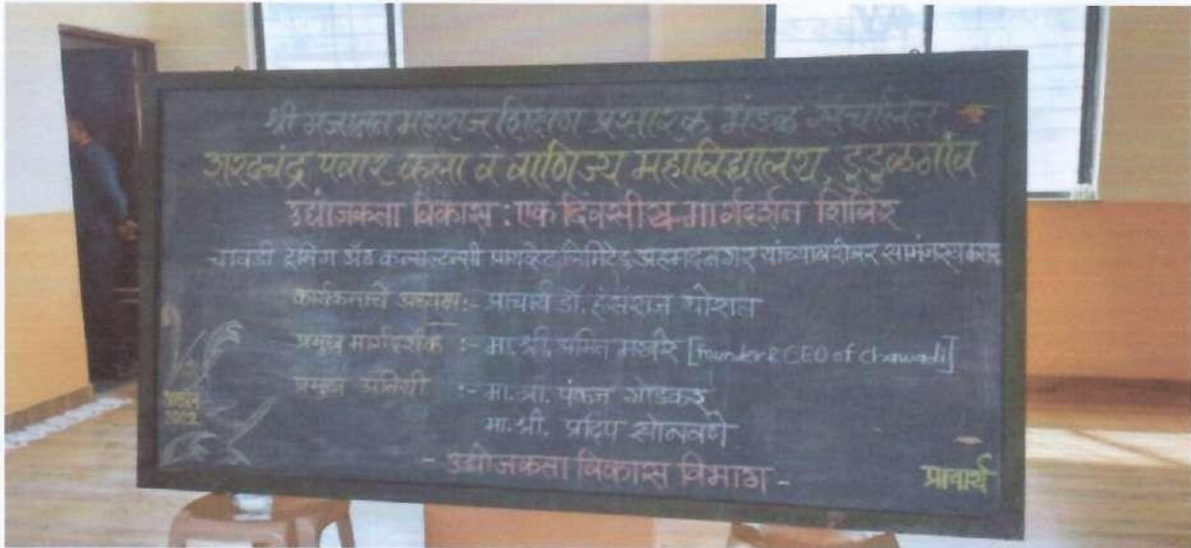 श्री गजानन महाराज शिक्षण प्रसारक मंडळ संचालित
शरदचंद्र पवार कला व वाणिज्य महाविद्यालय, डुडुळगाँव
उद्योजकता विकास : एक दिवसीय मार्गदर्शन शिबिर
चावडी ट्रेनिंग अँड कन्सल्टन्सी प्रायव्हेट लिमिटेड, अहमदनगर यांच्याबरोबर सामंजस्य करार
कार्यक्रमाचे अध्यक्ष :- प्राचार्य डॉ. हंसराज थोरात
प्रमुख मार्गदर्शक :- मा. श्री. अमित मखरे [Founder & CEO of Chawadi]
प्रमुख अतिथी :- मा. श्री. पंकज गोडकर
मा. श्री. प्रदिप सोनवणे
- उद्योजकता विकास विभाग -
प्राचार्य